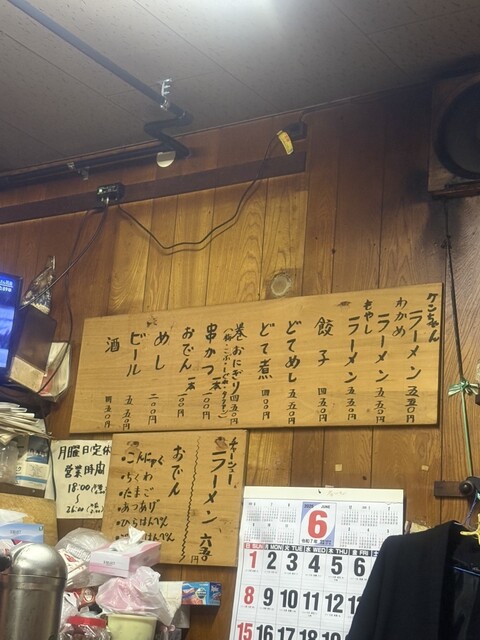 ケンちゃん
ラーメン 五五〇
わかめ
ラーメン 五五〇
もやし
ラーメン 五五〇
餃子 四五〇
どてめし 五五〇
どて煮 四〇〇
巻おにぎり 四五〇
串かつ 一本 一〇〇
おでん 一本 一〇〇
めし 二〇〇
ビール 五五〇
酒 四五〇
チャーシュー
ラーメン 六五〇円
おでん
・こんにゃく
・ちくわ
・たまご
・あつあげ
・ひらはんぺん
はんぺん
月曜日定休
営業時間
18:00
〜
26:00
2025 6 JUNE
令和7年
SUN MON TUE WED THU FRI
1 2 3 4 5 6
8 9 10 11 12 13
15 16 17 18 19